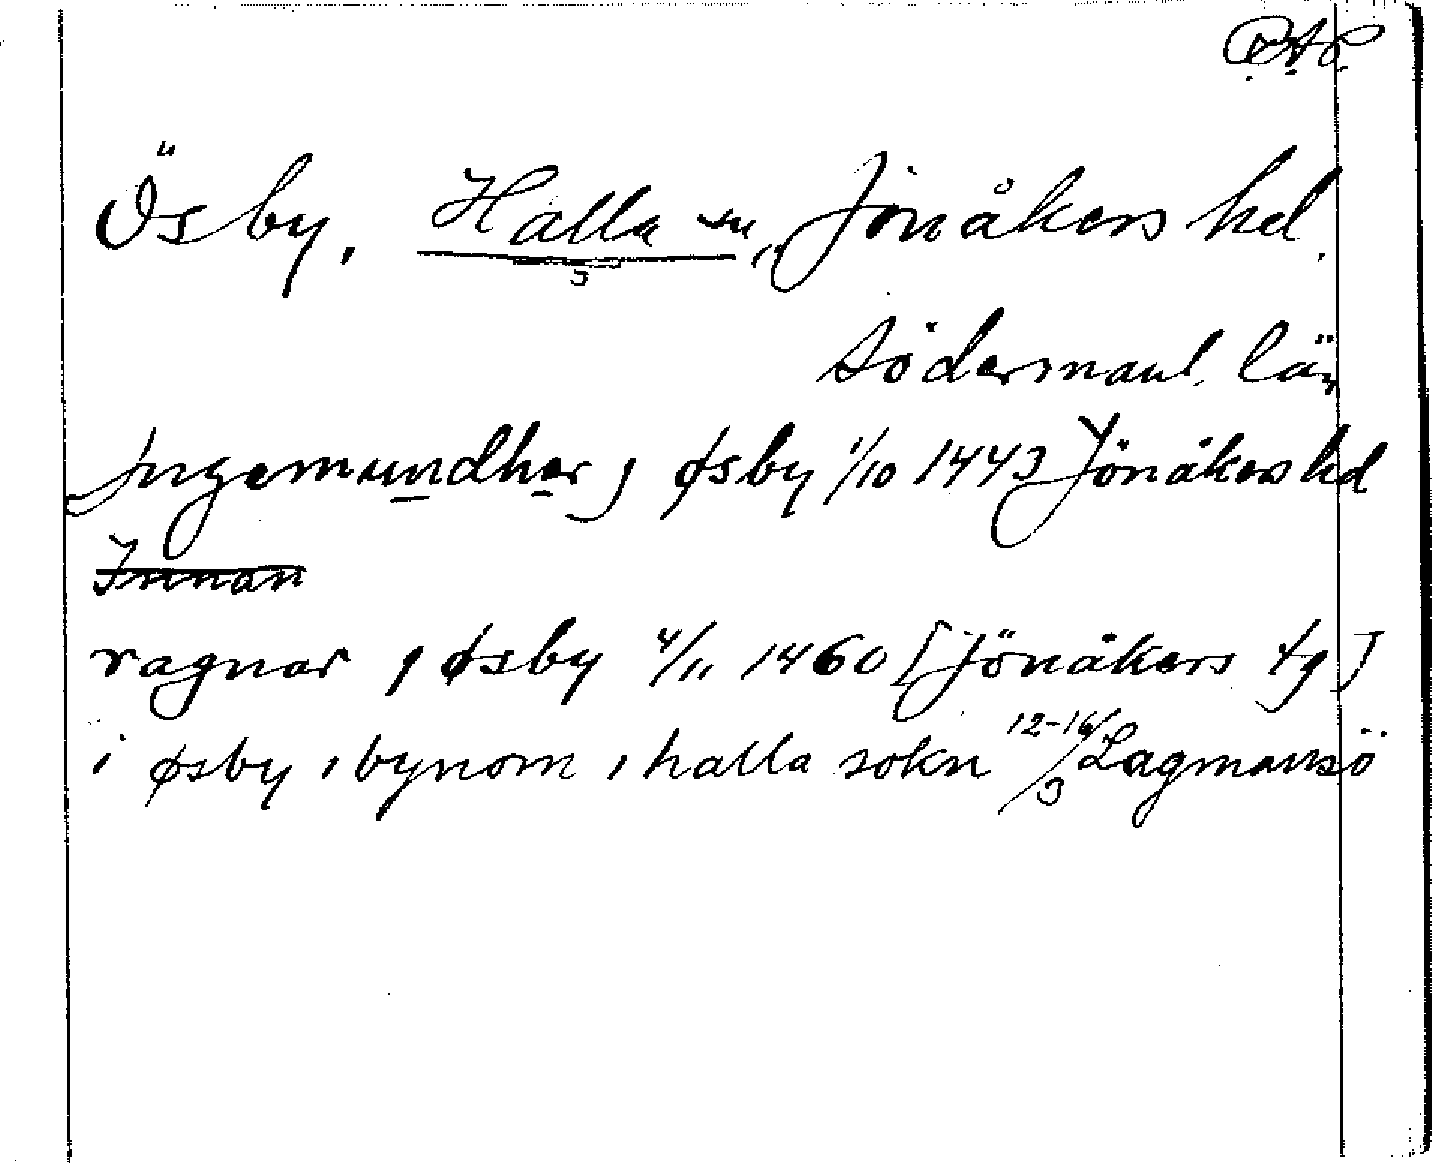 R.A.P.
Ösby, Halla sn, Jönåkers hd.
Södermanl. län
Jngemundher j øsby 1/10 1443 Jönåkers hd
Innan
ragnar j øsby 4/11 1460 [Jönåkers tg]
i øsby i bynom i halla sokn 12-16/3 Lagmansö